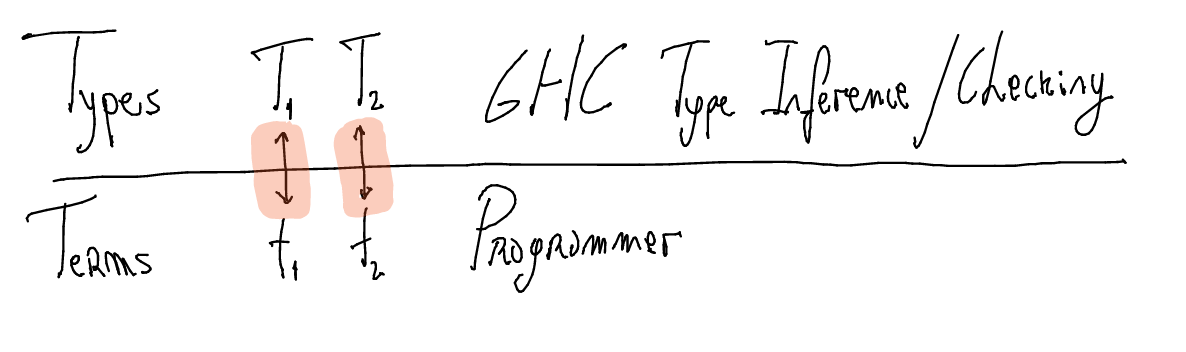 Types T1 T2 GHC Type Inference/Checking
Terms t1 t2 Programmer